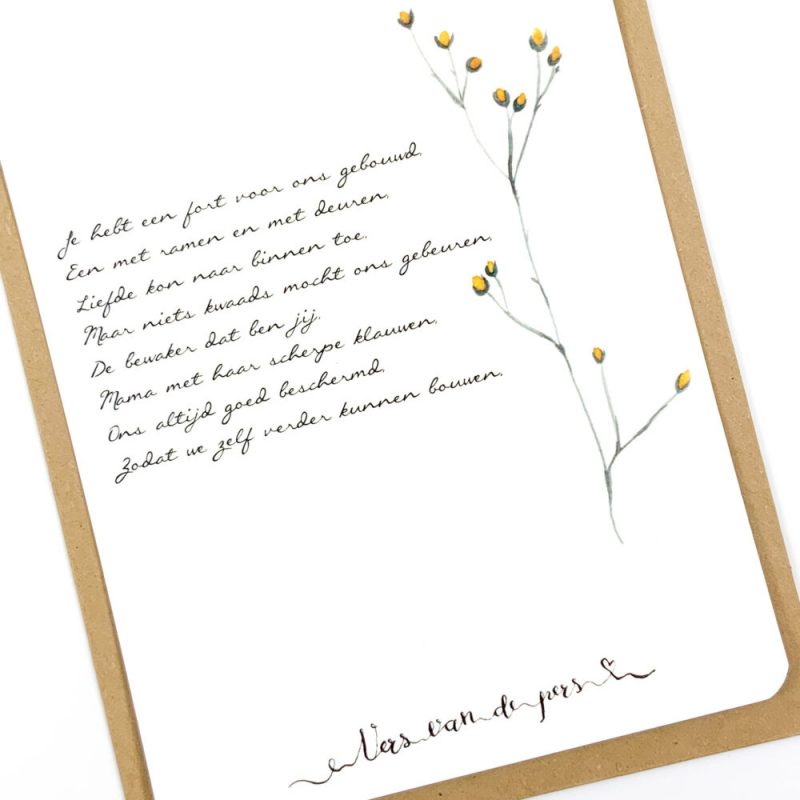 Je hebt een fort voor ons gebouwd,
Een met ramen en met deuren.
Liefde kon naar binnen toe.
Maar niets kwaads mocht ons gebeuren.
De bewaker dat ben jij.
Mama met haar scherpe klauwen.
Ons altijd goed beschermd,
Zodat we zelf verder kunnen bouwen.
Vers van de pers